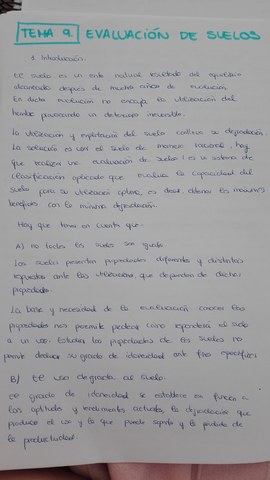 TEMA 9. EVALUACIÓN DE SUELOS
1. Introducción.
El suelo es un ente natural resultado del equilibrio
alcanzado después de muchos años de evolución.
En dicha evolución no encaja la utilización del
hombre provocando un deterioro irreversible.
La utilización y explotación del suelo conlleva su degradación.
La solución es usar el suelo de manera racional, hay
que realizar una evaluación de suelos (es un sistema de
clasificación aplicada que evalua la capacidad del
suelo para su utilización óptima, es decir, obtener los máximos
beneficios con la mínima degradación.
Hay que tener en cuenta que:
A) no todos los suelos son iguales.
Los suelos presentan propiedades diferentes y distintas
respuestas ante las utilizaciones, que dependen de dichas
propiedades.
La base y necesidad de la evaluación conocer las
propiedades nos permite predecir cómo responderá el suelo
a un uso. Estudiar las propiedades de los suelos no
permite deducir su grado de idoneidad ante fines específicos
B) El uso degrada al suelo.
El grado de idoneidad se establece en función a
las aptitudes y rendimientos actuales, la degradación que
produce el uso y lo que puede soportar y la pérdida de
la productividad.